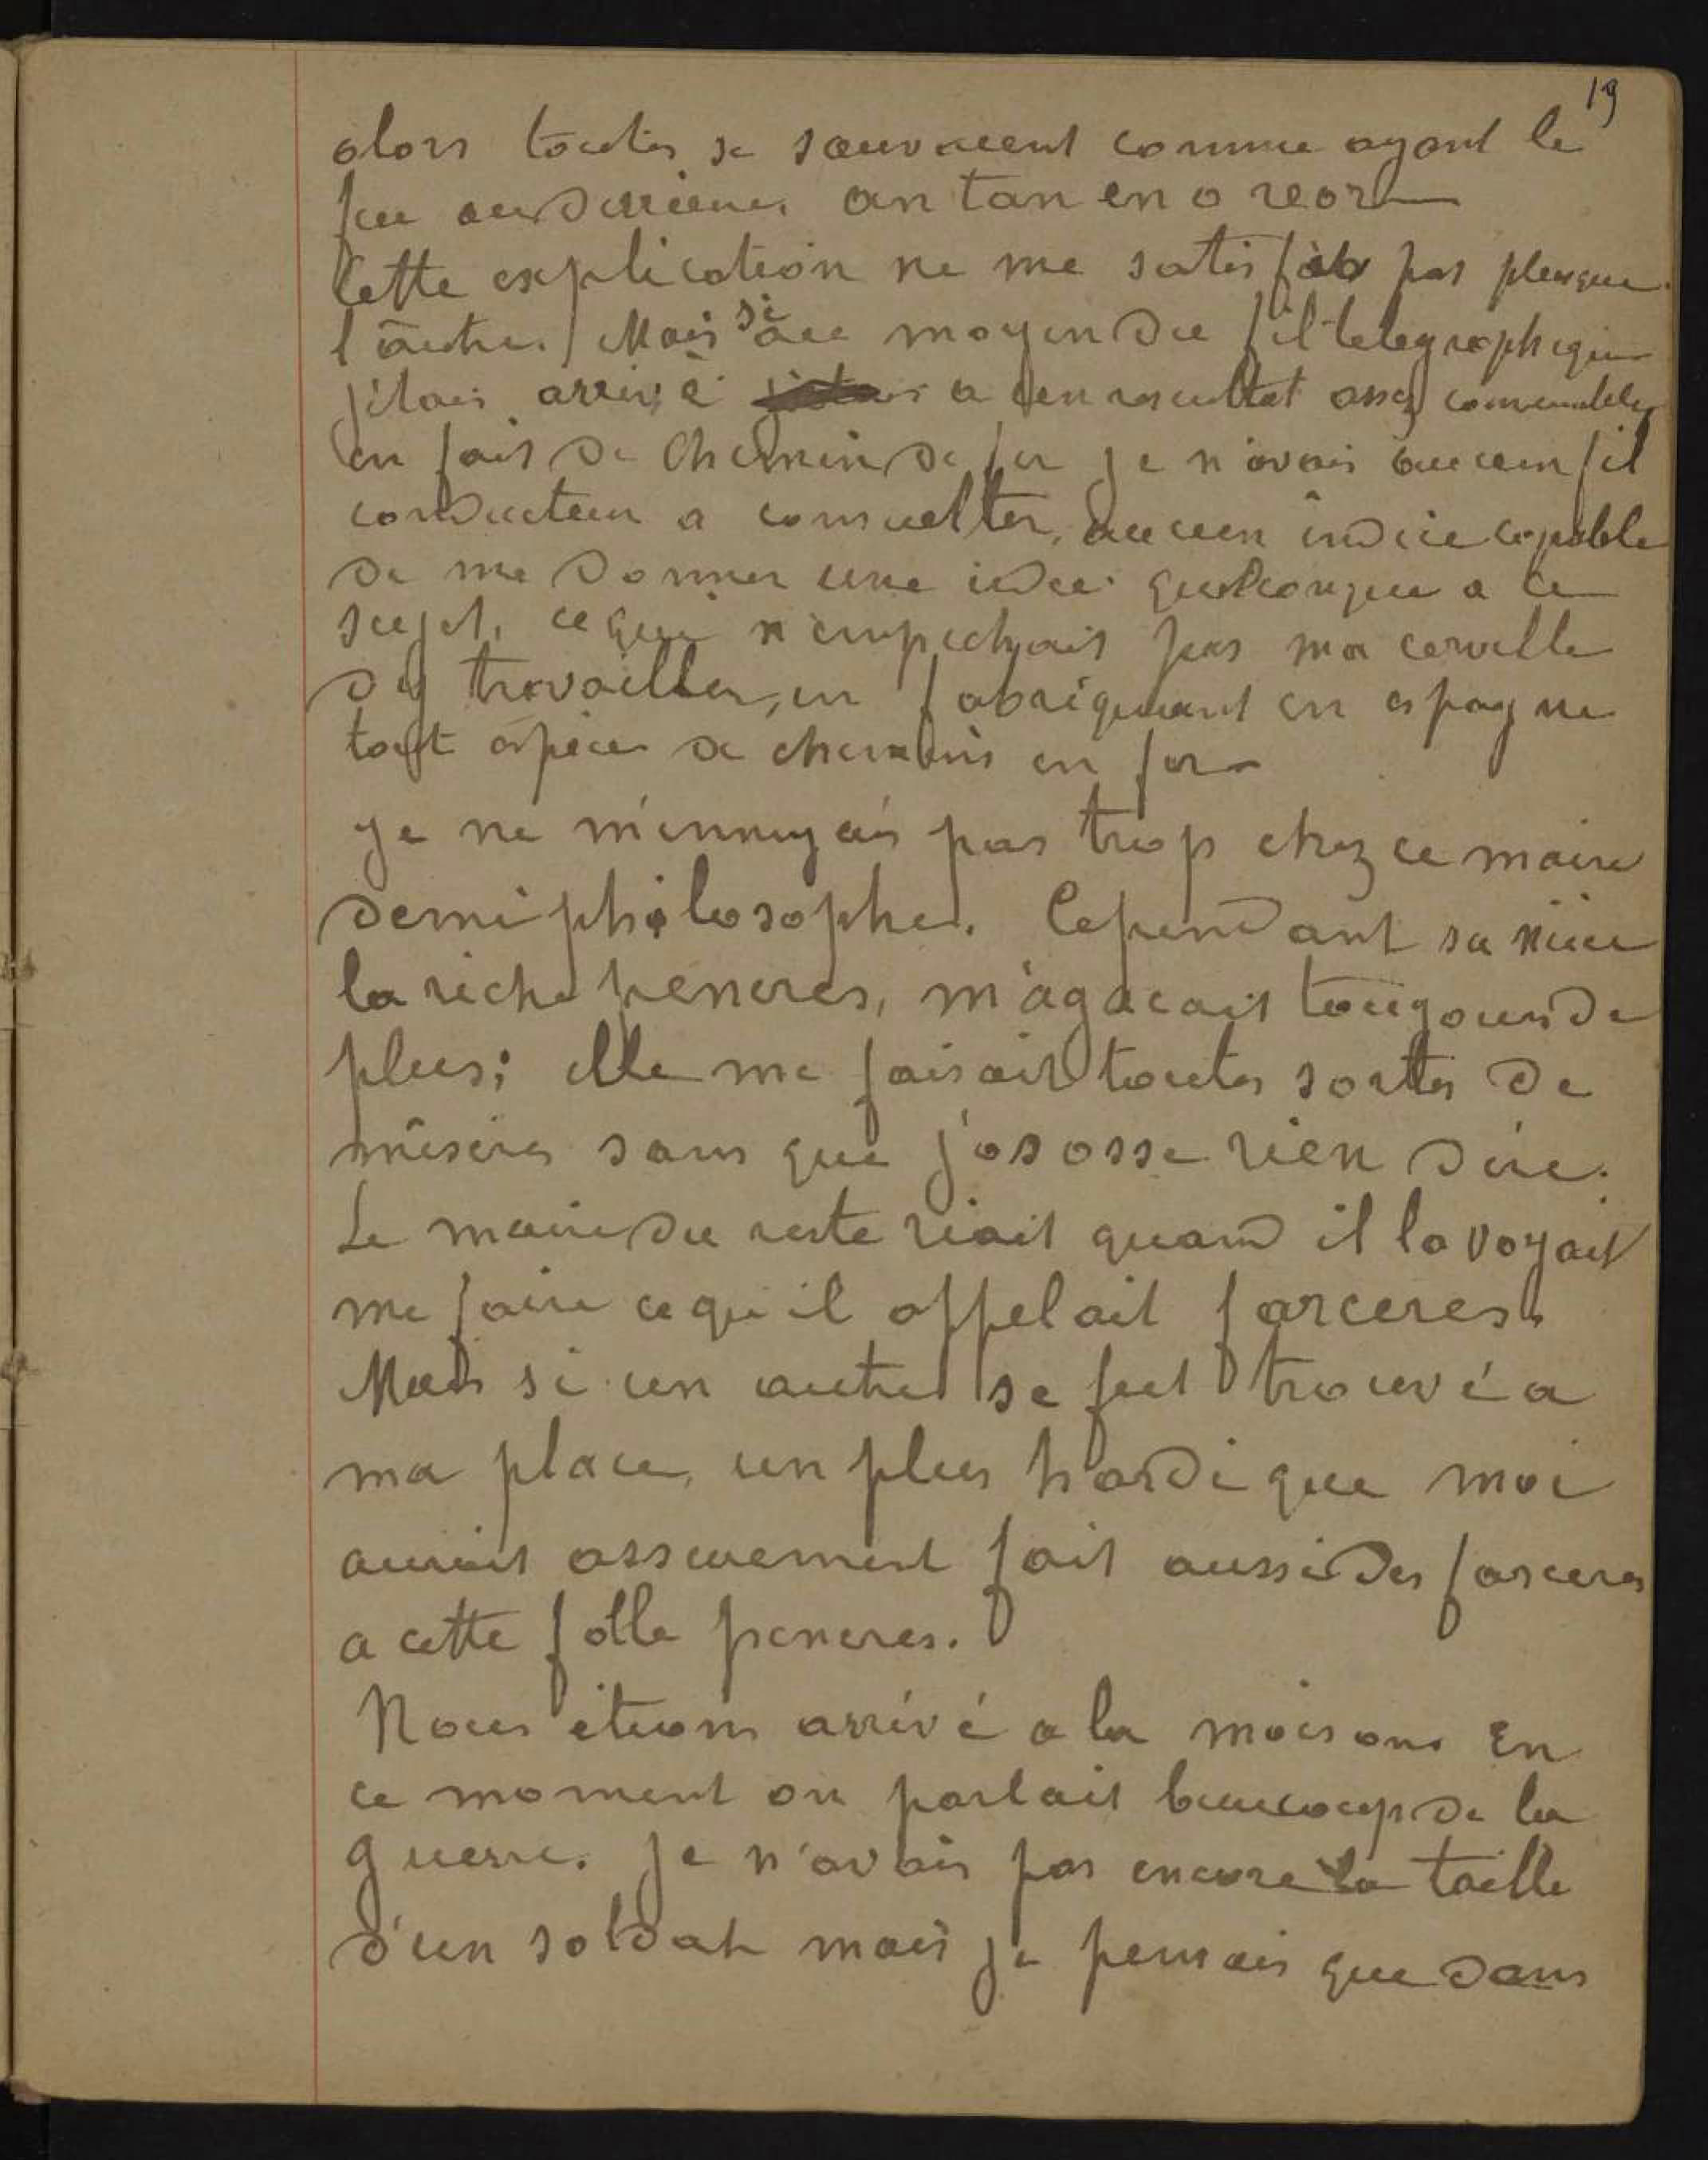 19
alors toutes se sauvaient comme ayant le
feu au derriere. an tan en o reor
Cette explication ne me satisfait pas plus que
l'autre. Mais si au moyen du fil telegraphique
j'étais arrivé a un resultat assez convenable,
en fait de chemin de fer je n'avais aucun fil
conducteur a consulter, aucun indice capable
de me donner une idee quelconque a ce
sujet, ce qui n'empechait pas ma cervelle
d'y travailler, en fabriquant en espagne
tout espèce de chemins en fer
je ne m'ennuyais pas trop chez ce maire
demi philosophe. Cependant sa nièce
la riche peneres, m'agacait toujours de
plus; elle me faisait toutes sortes de
misères sans que j'osasse rien dire.
Le maire du reste riait quand il la voyait
me faire ce qu'il appelait farceres.
Mais si un autre se fut trouvé a
ma place, un plus hardi que moi
aurait assurement fait aussi des farceres
a cette folle peneres.
Nous étions arrivé a la maison. En
ce moment on parlait beaucoup de la
guerre. je n'avais pas encore la taille
d'un soldat mais je pensais que dans